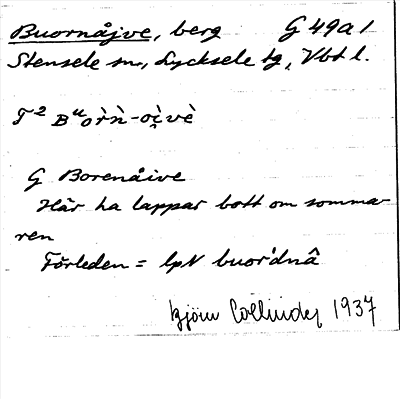 Buornåjve, berg G 49a1
Stensele sn, Lycksele tg, Vbt l.
F² Buor̀ǹ-oi̯vè
G Borenåive
Här ha lappar bott om somma-
ren
Förleden = lpN buor'dnâ
Björn Collinder 1937